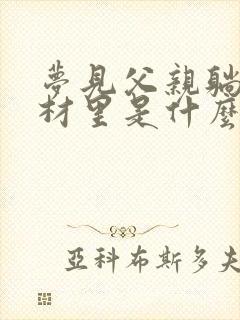 夢見父親躺
材里是什麼
亞科布斯多夫